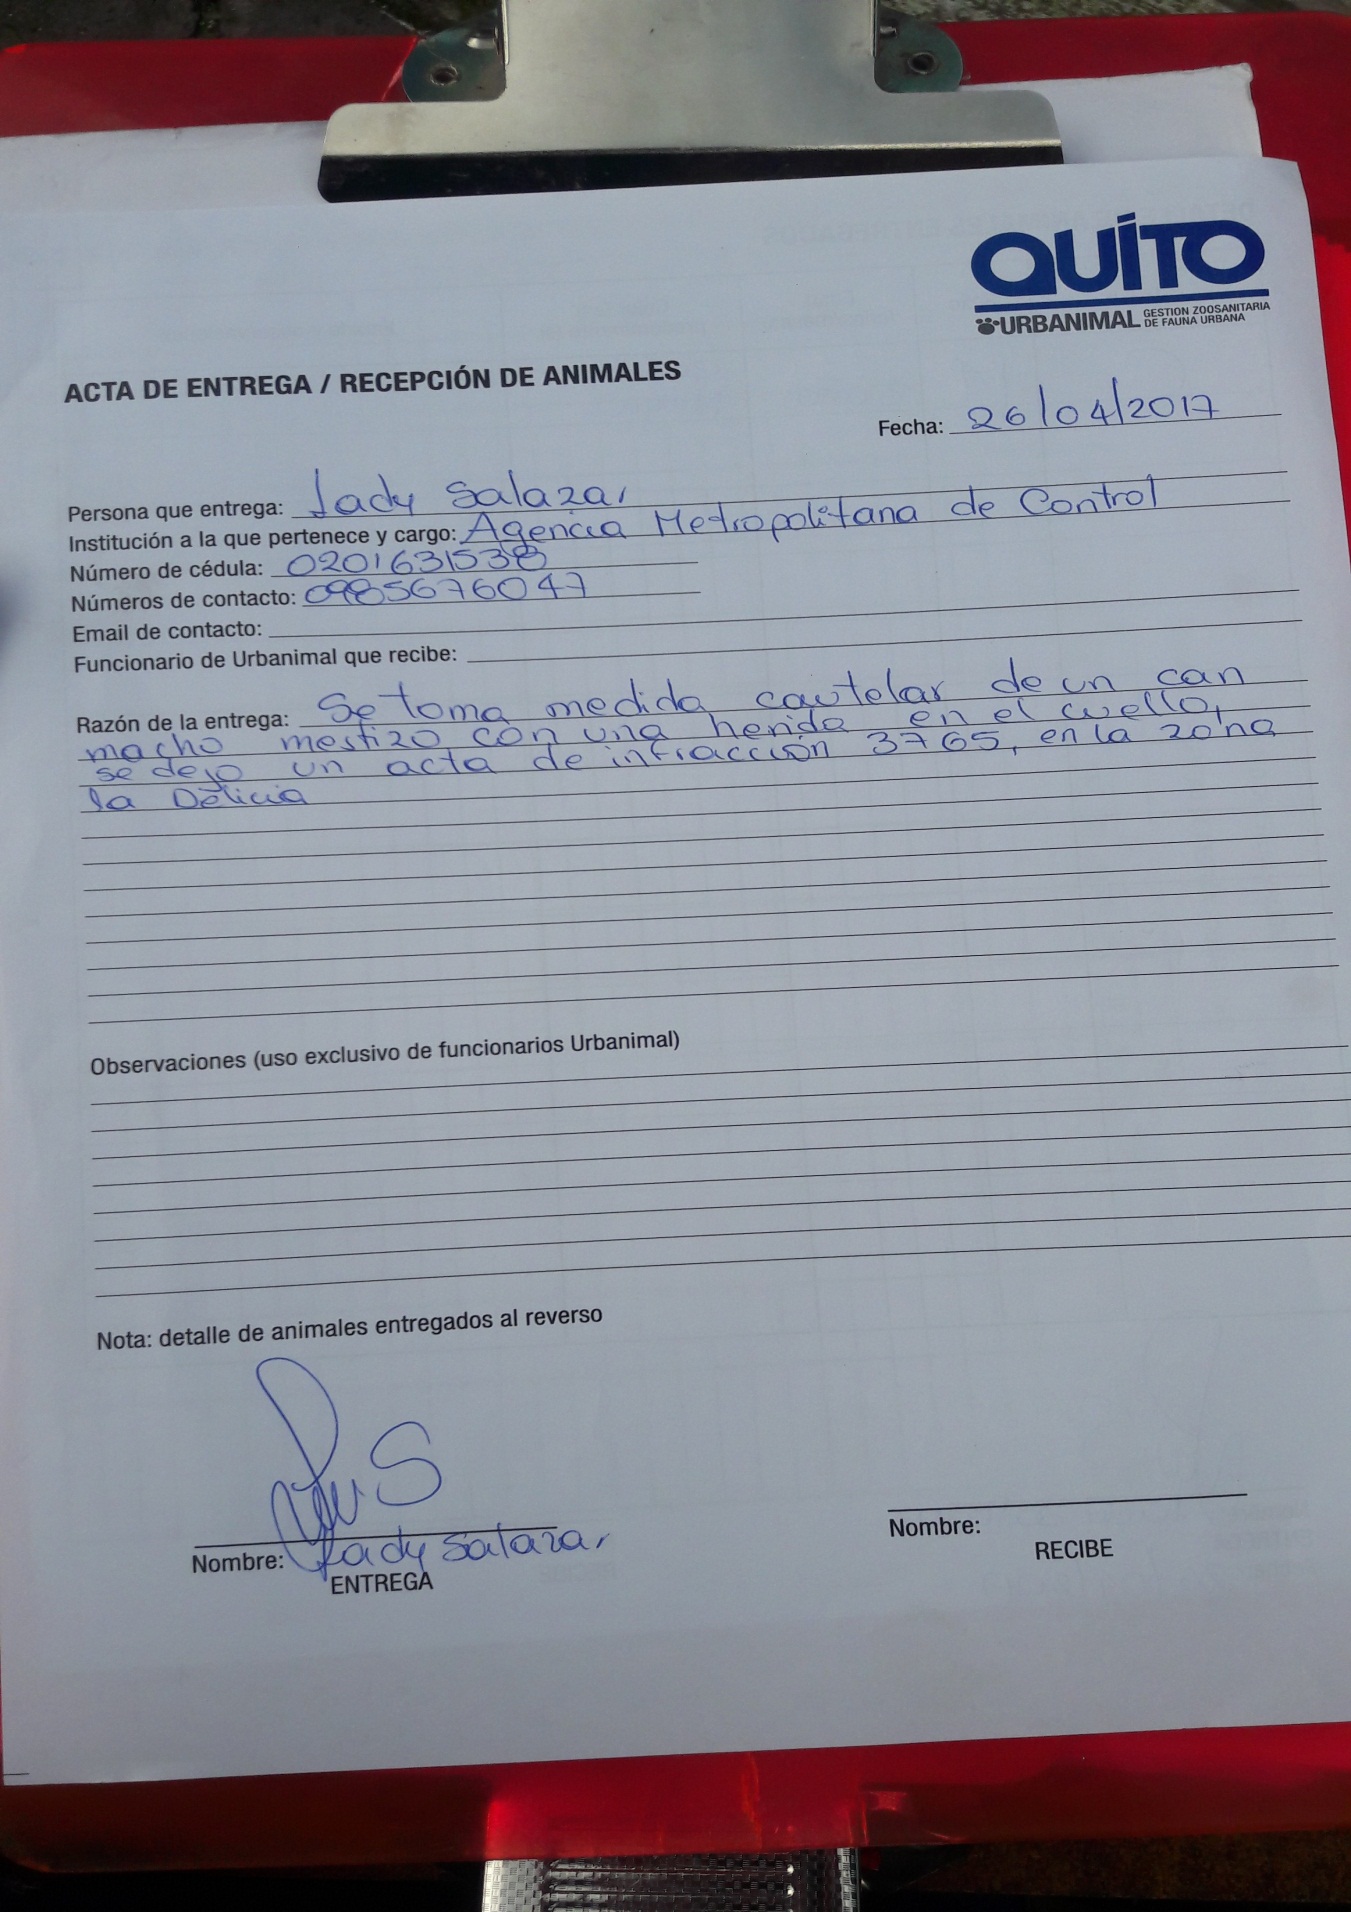 QUITO
URBANIMAL GESTION ZOOSANITARIA DE FAUNA URBANA
ACTA DE ENTREGA / RECEPCIÓN DE ANIMALES
Fecha: 26/04/2017
Persona que entrega: Lady Salazar
Institución a la que pertenece y cargo: Agencia Metropolitana de Control
Número de cédula: 0201631538
Números de contacto: 0985676047
Email de contacto:
Funcionario de Urbanimal que recibe:
Razón de la entrega: Se toma medida cautelar de un can
macho mestizo con una herida en el cuello,
se dejo un acta de infracción 3765, en la zona
la Delicia
Observaciones (uso exclusivo de funcionarios Urbanimal)
Nota: detalle de animales entregados al reverso
Nombre: Lady Salazar
ENTREGA
Nombre:
RECIBE